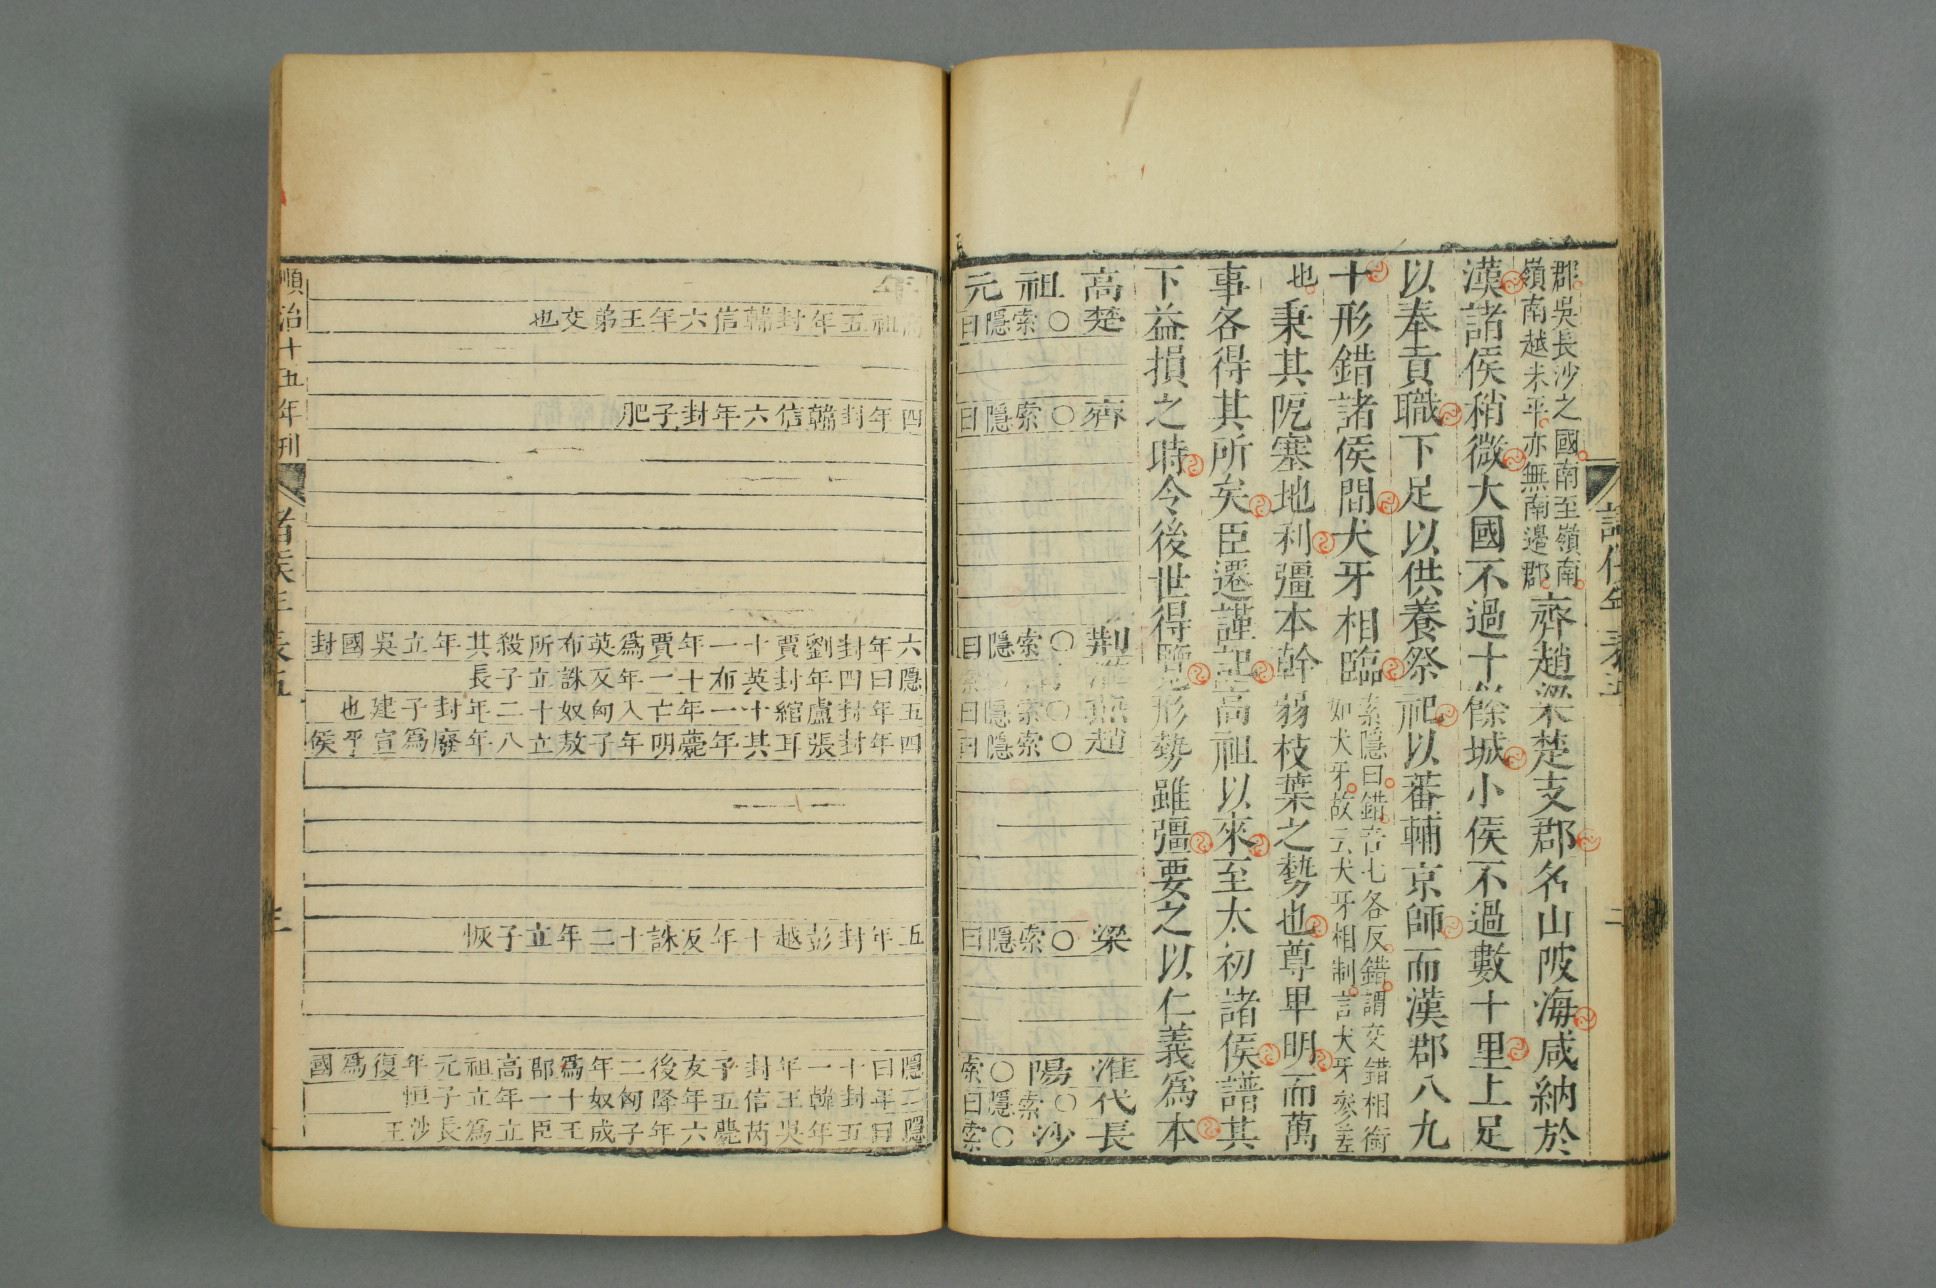 郡吳長沙之國南至嶺南
嶺南越未平亦無南邊郡
齊趙梁楚支郡名山陂海咸納於
漢諸侯稍微大國不過十餘城小侯不過數十里上足
以奉貢職下足以供養祭祀以蕃輔京師而漢郡八九
十形錯諸侯間犬牙相臨
索隱曰錯音七各反錯謂交錯相銜
如犬牙故云犬牙相制言犬牙參差
也
秉其阨塞地利彊本幹弱枝葉之勢也尊卑明而萬
事各得其所矣臣遷謹記高祖以來至太初諸侯譜其
下益損之時令後世得覽形勢雖彊要之以仁義為本
高祖元年
楚○索隱曰高祖五年封韓信六年王弟交也
齊○索隱曰四年封韓信六年封子肥
荆○索隱曰六年封劉賈十一年賈為英布所殺其年立吳國封
淮南○索隱曰四年封英布十一年反誅立子長
燕○索隱曰五年封盧綰十一年亡入匈奴十二年封子建也
趙○索隱曰四年封張耳其年薨明年子敖立八年廢為宣平侯
梁○索隱曰五年封彭越十年反誅十二年立子恢
淮陽○索隱曰十一年封子友後二年為郡高祖元年復為國
代○索隱曰二年封韓王信五年降匈奴十一年立子恒
長沙○索隱曰五年封吳芮六年薨子成王臣立為長沙王
順治十五年刊